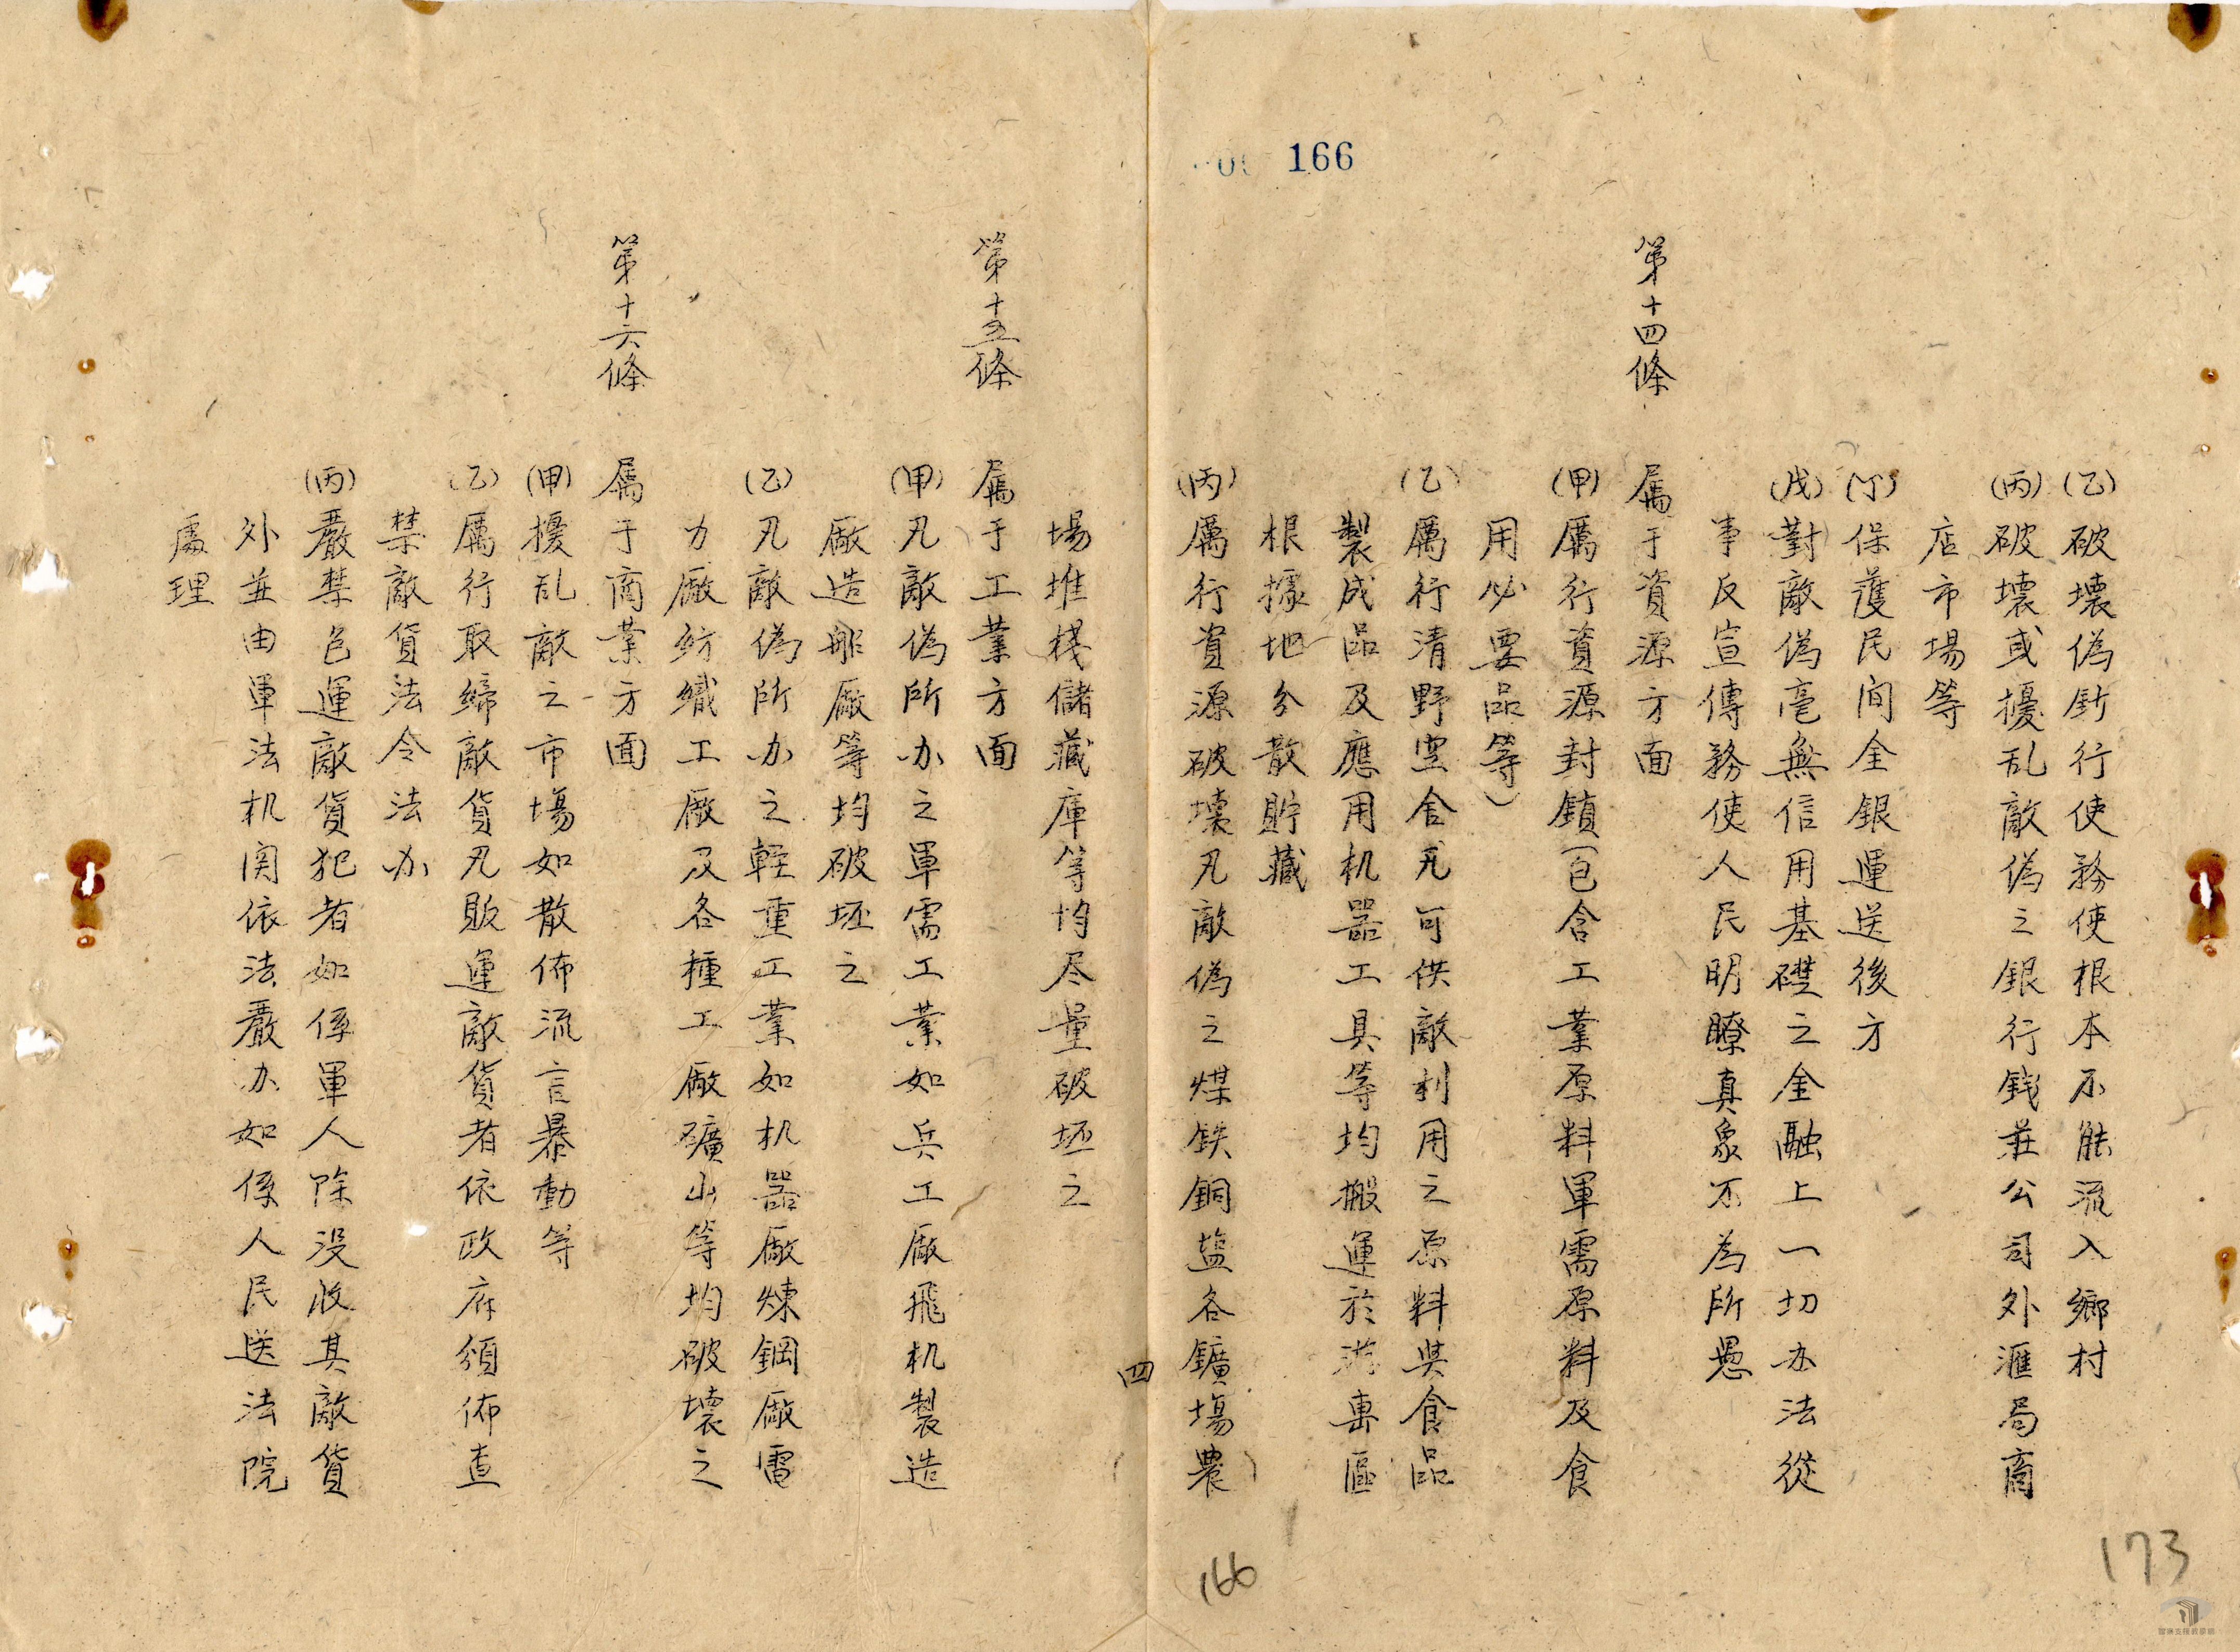 166
(乙)破壞偽鈔行使務使根本不能流入鄉村
(丙)破壞或擾乱敵偽之銀行錢莊公司外滙局商
店市場等
(丁)保護民间金銀運送後方
(戊)對敵偽毫無信用基礎之金融上一切办法從
事反宣傳務使人民明瞭真象不為所愚
第十四條
屬于資源方面
(甲)厲行資源封鎖(包含工業原料軍需原料及食
用必要品等)
(乙)厲行清野空舍凡可供敵利用之原料與食品
製成品及應用机器工具等均搬運於游擊區
根據地分散貯藏
(丙)厲行資源破壞凡敵偽之煤鉄銅盐各鑛場農
四
場堆棧儲藏庫等均尽量破坯之
第十五條
屬于工業方面
(甲)凡敵偽所办之軍需工業如兵工廠飛机製造
廠造船廠等均破坯之
(乙)凡敵偽所办之輕重工業如机器廠煉鋼廠電
力廠紡織工廠及各種工廠礦山等均破壞之
第十六條
屬于商業方面
(甲)擾乱敵之市場如散佈流言暴動等
(乙)厲行取締敵貨凡販運敵貨者依政府頒佈查
禁敵貨法令法办
(丙)嚴禁包運敵貨犯者如係軍人除没收其敵貨
外並由軍法机関依法嚴办如係人民送法院
處理
166
173